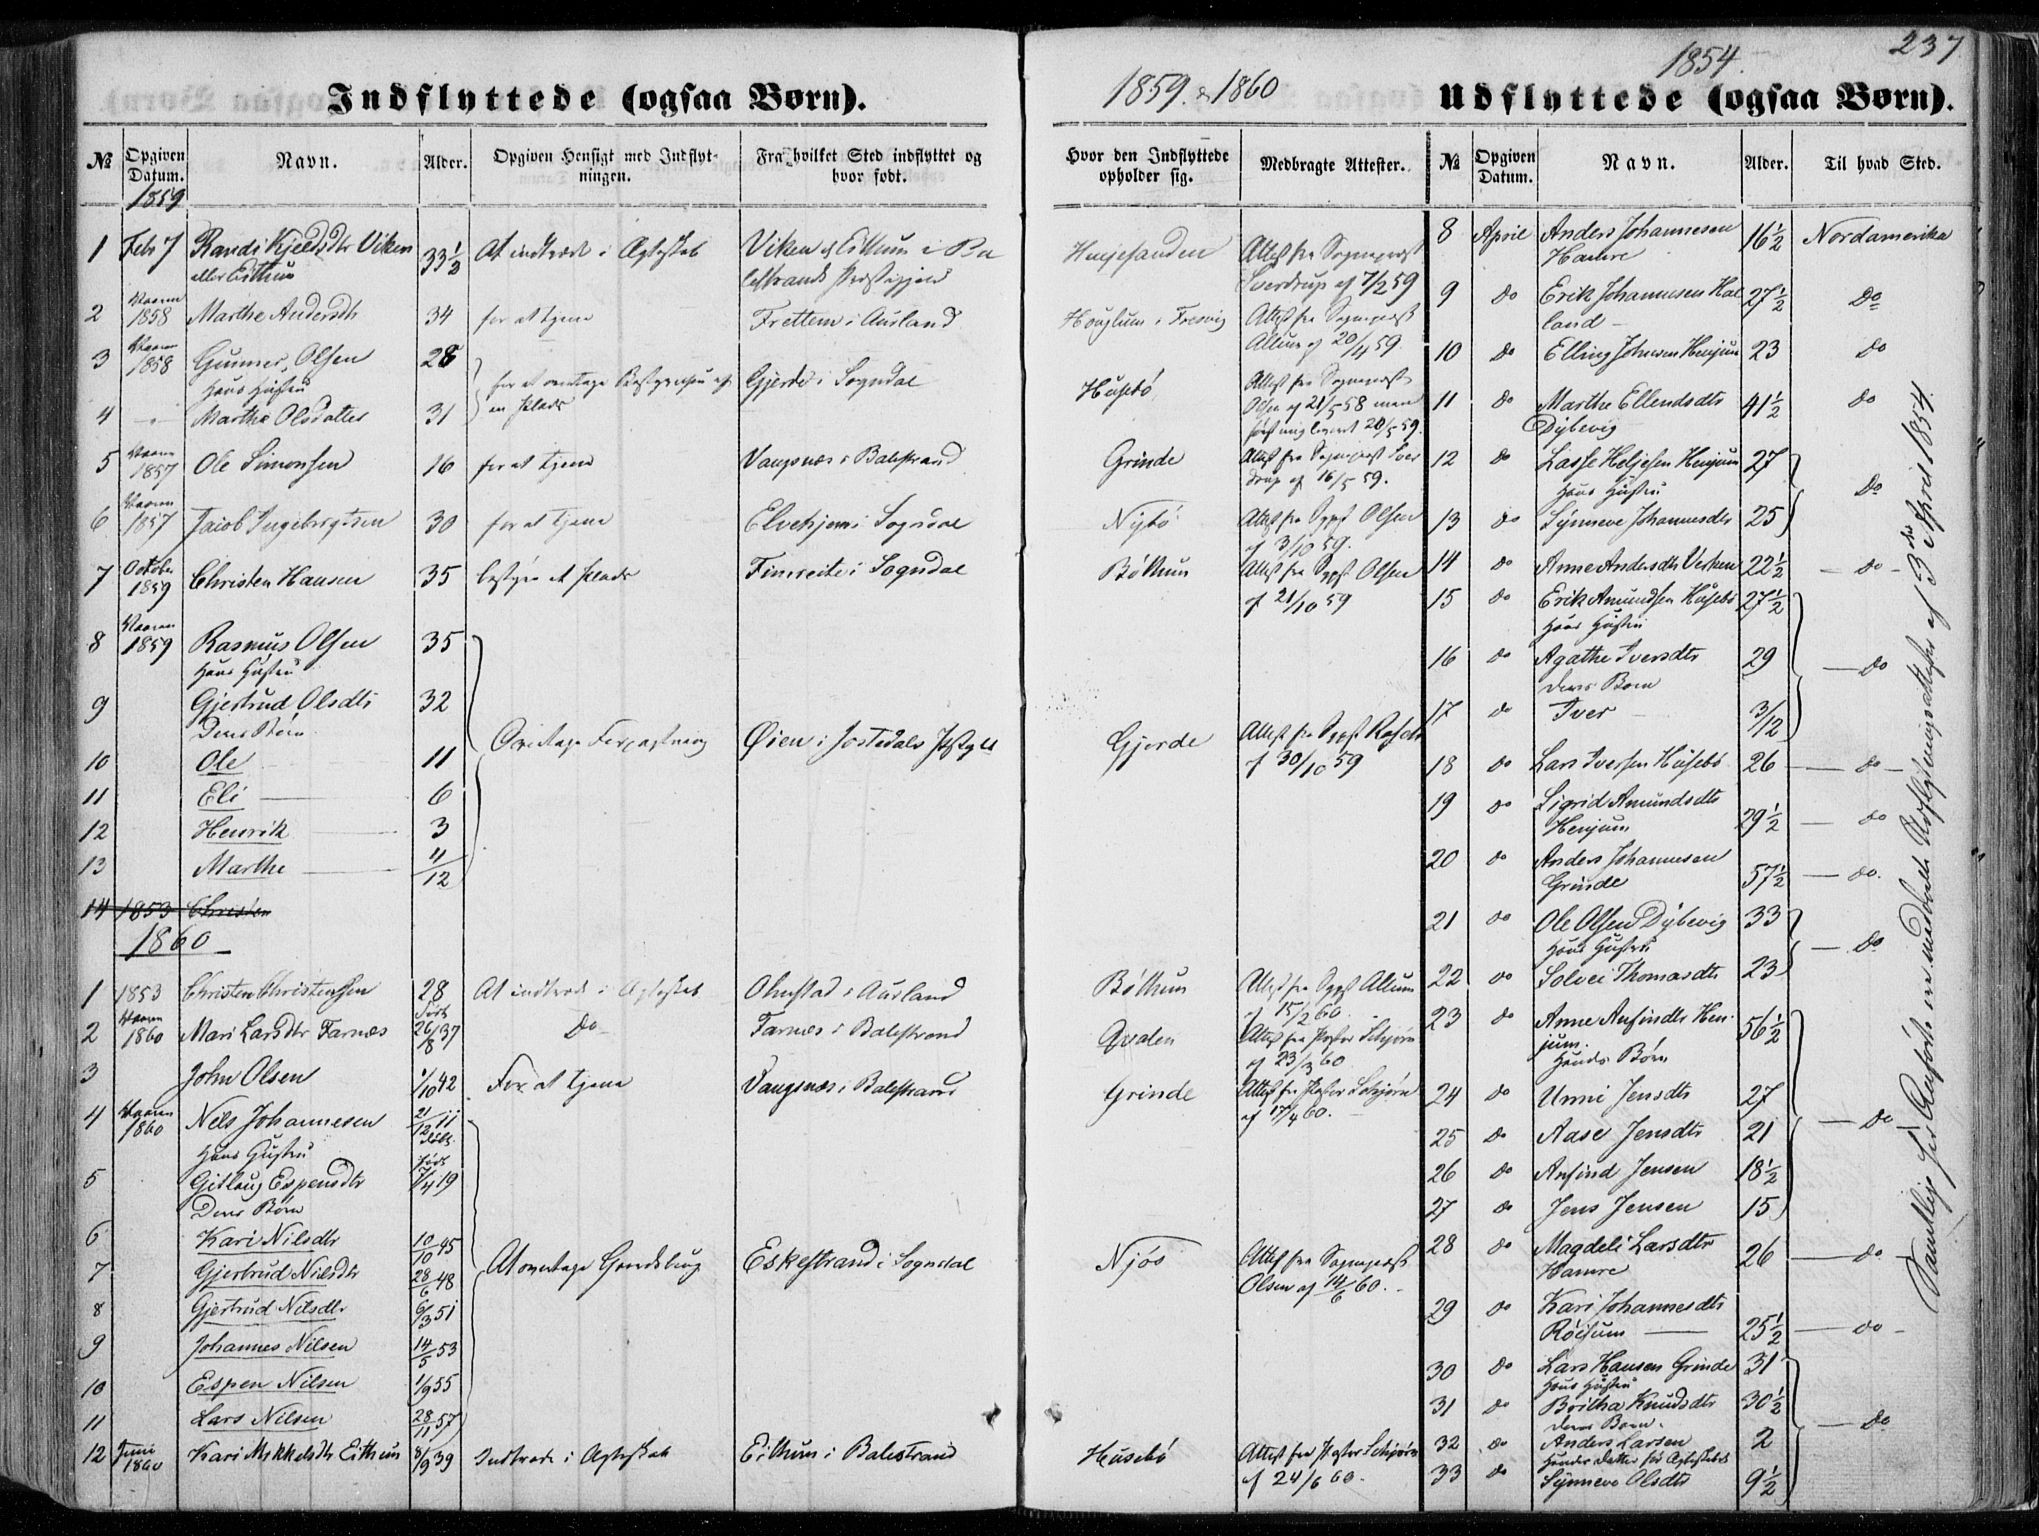 237
1854.
1859. & 1860
Indflyttede (ogsaa Børn).
Udflyttede (ogsaa Børn).
№ Opgiven Datum. Navn. Alder. Opgiven Hensigt med Indflytningen. Fra hvilket Sted indflyttet og hvor født. Hvor den Indflyttede opholder sig. Medbragte Attester.
1859
1 Febr 7 Randi Kjeldsdtr Viken 33½ At indtræde i Ægteskab Viken & Eithun i Ba
eller Eithun lestrands Præstegjeld
Attest fra Sognepræst
Sverdrup af 7/2 59
2 Vaaren 1858 Marthe Andersdtr 34 for at tjene Frettem i Aurland Houglum i Fresvig Attest fra Sognepræst
af 20/4 59.
3 Vaaren 1858 Gunner Olsen 28 Gjerde i Sogndal Husebö Attest fra Sognepræst
Hans Hustru Olsen af 21/5 58 men
4 Marthe Olsdatter 31 en Plads 20/5 59.
5 Vaaren 1857 Ole Simonsen 16 for at tjene Vangsnæs i Balestrand Grinde Attest fra Sognepræst Sver
drup af 16/5 59.
6 Vaaren 1857 Jacob Ingebrigtsen 30 for at tjene i Sogndal Nybö Attest fra Sgpst Olsen
af 3/10 59.
7 October 1859 Christen Hansen 35 Plads Fimreite i Sogndal Böthun Attest fra Sgpst Olsen
af 21/10 59
8 Vaaren 1859 Rasmus Olsen 35
Hans Hustru
9 Gjertrud Olsdtr 32
Deres Børn
Øien i Jostedals Gjerde Attest fra Sgpst
af 30/10 59
10 Ole 11
11 Eli 6
12 Henrik 3
13 Marthe 11/12
14 1853 Christen
1860
1 1853 Christen Christensen 28 At indtræde i Ægteskab Ohnstad i Aurland Böthun
15/2 60.
2 Vaaren 1860 Mari Larsdtr Farnæs Født 26/8 37 Do Farnæs i Balestrand Qvalen
af 23/3 60
3 John Olsen 1/10 42 For at tjene Vangsnæs i Balestrand Grinde
af 17/4 60.
4 Vaaren 1860 Nels Johannesen 21/12 11
Hans Hustru
5 Gitlaug Espensdtr Født 5/4 19
Deres Børn
6 Kari Nilsdtr 10/10 45
At overtage Gaardsbrug Eskestrand i Sogndal Njøs Attest fra Sognepræst
Olsen af 14/6 60.
7 Gjertrud Nielsdtr 28/6 48
8 Gjertrud Nilsdtr 6/3 51
9 Johannes Nilsen 14/5 53
10 Espen Nilsen 1/9 55
11 Lars Nilsen 28/11 57
12 Juni 1860 Kari Mikkelsdtr Eithun 8/9 39 Indtræde i Ægteskab Eithun i Balestrand Husebö
af 24/6 60.
№ Opgiven Datum. Navn. Alder. Til hvad Sted.
8 April Anders Johannesen 16½ Nordamerika
Hamre
9 do Erik Johannesen Hal 27½ Do
land
10 do Elling Johnsen Henjum 23 Do
11 do Marthe Ellendsdtr 41½ Do
Dybevig
12 do Lasse Heljesen Henjum 27
Hans Hustru Do
13 do Synneve Johannesdtr 25
14 do Anne Andersdtr 22½ do
15 do Erik Amundsen Husebö 27½
Hans Hustru
16 do Agathe Iversdtr 29 Do
Deres Barn
17 do Iver 3/12
18 do Lars Iversen Husebö 26 do
19 do Sigrid Amundsdtr
Henjum 29½ do
20 do Anders Johannesen
Grinde 57½ do.
21 do Ole Olsen Dybevig 33
Hans Hustru Do
22 do Solvei Thomasdtr 23
23 do Anne Anfindtr Hen- 56½
jum.
Hendes Børn
24 do Unni Jensdtr 27
25 do Aase Jensdtr 21 Do
26 do Anfind Jensen 18½
27 do Jens Jensen 15
28 do Magdeli Larsdtr 26 do.
Hamre
29 do Kari Johannesdtr
Röisum 25½ do
30 do Lars Hansen Grinde 31
Hans Hustru
31 do Britha Knudsdtr 30½
Deres Barn. Do
32 do Anders Larsen 2
Hendes Datter før Ægteskabet
33 do Synneve Olsdtr 9½
Samtlige her Anførte ere meddeelt Udflytningsattester af 3die April 1854.